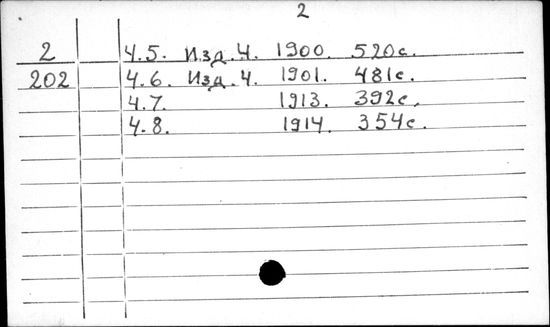 2
2 Ч.5. Изд.4. 1900. 520с.
202 Ч.6. Изд.4. 1901. 481с.
Ч.7. 1913. 392с.
Ч.8. 1914. 354с.